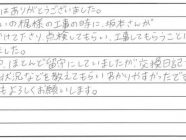 はありがとうございました。
いの棟様の工事の時に、坂本さんが
けて下さり点検してもらい、工事してもらうこと
ました。
、ほとんど留守にしていましたが、交換日記
状況などを教えてもらい、わかりやすかったです
もよろしくお願いします。